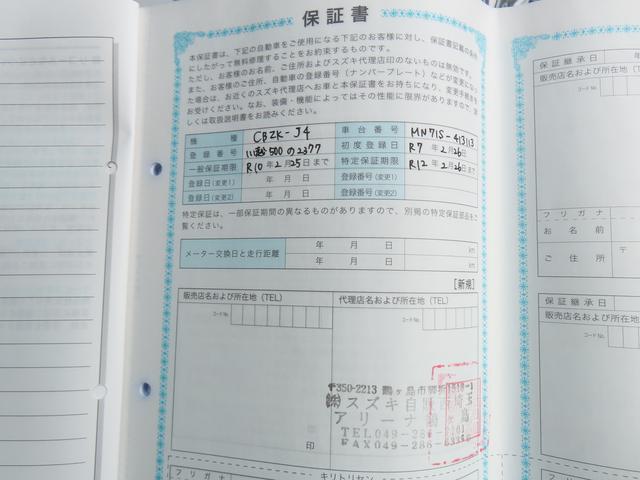 保証書
本保証書は、下記の自動車をご使用になる下記のお客様に対し、保証書記載の条件
にしたがって無料修理することをお約束するものです。
ただし、お客様のお名前、ご住所およびスズキ代理店印のないものは無効です。
また、お客様のご住所、自動車の登録番号（ナンバープレート）などが変更になっ
た場合は、お近くのスズキ代理店へお車と本保証書をお持ちになり、変更手続きを
お受けください。なお、装備・機能によってはその性能に限界がありますので、詳
しくは取扱説明書をお読みください。
機種 CBZK-J4 車台番号 MN71S-413113
登録番号 川越500の2377 初度登録日 R7年2月26日
一般保証期限 R10年2月25日まで 特定保証期限 R12年2月26日まで
登録日（変更1） 登録番号（変更1）
登録日（変更2） 登録番号（変更2）
特定保証は、一部保証期間の異なるものがありますので、別掲の特定保証部品をご
覧ください。
メーター交換日と走行距離 年 月 日 km 年 月 日 km
年 月 日 km 年 月 日 km
[新規]
販売店名および所在地（TEL） 代理店名および所在地（TEL）
コードNo. コードNo.
〒350-2213 鶴ヶ島市
㈱スズキ自販
アリーナ
TEL049-28
FAX049-28
印
キリトリセン
フリガナ
保証継承日 年
販売店名および所在地
コードNo.
フリガナ
お名前
ご住所 〒
保証継承日 年
販売店名および所在地
コードNo.